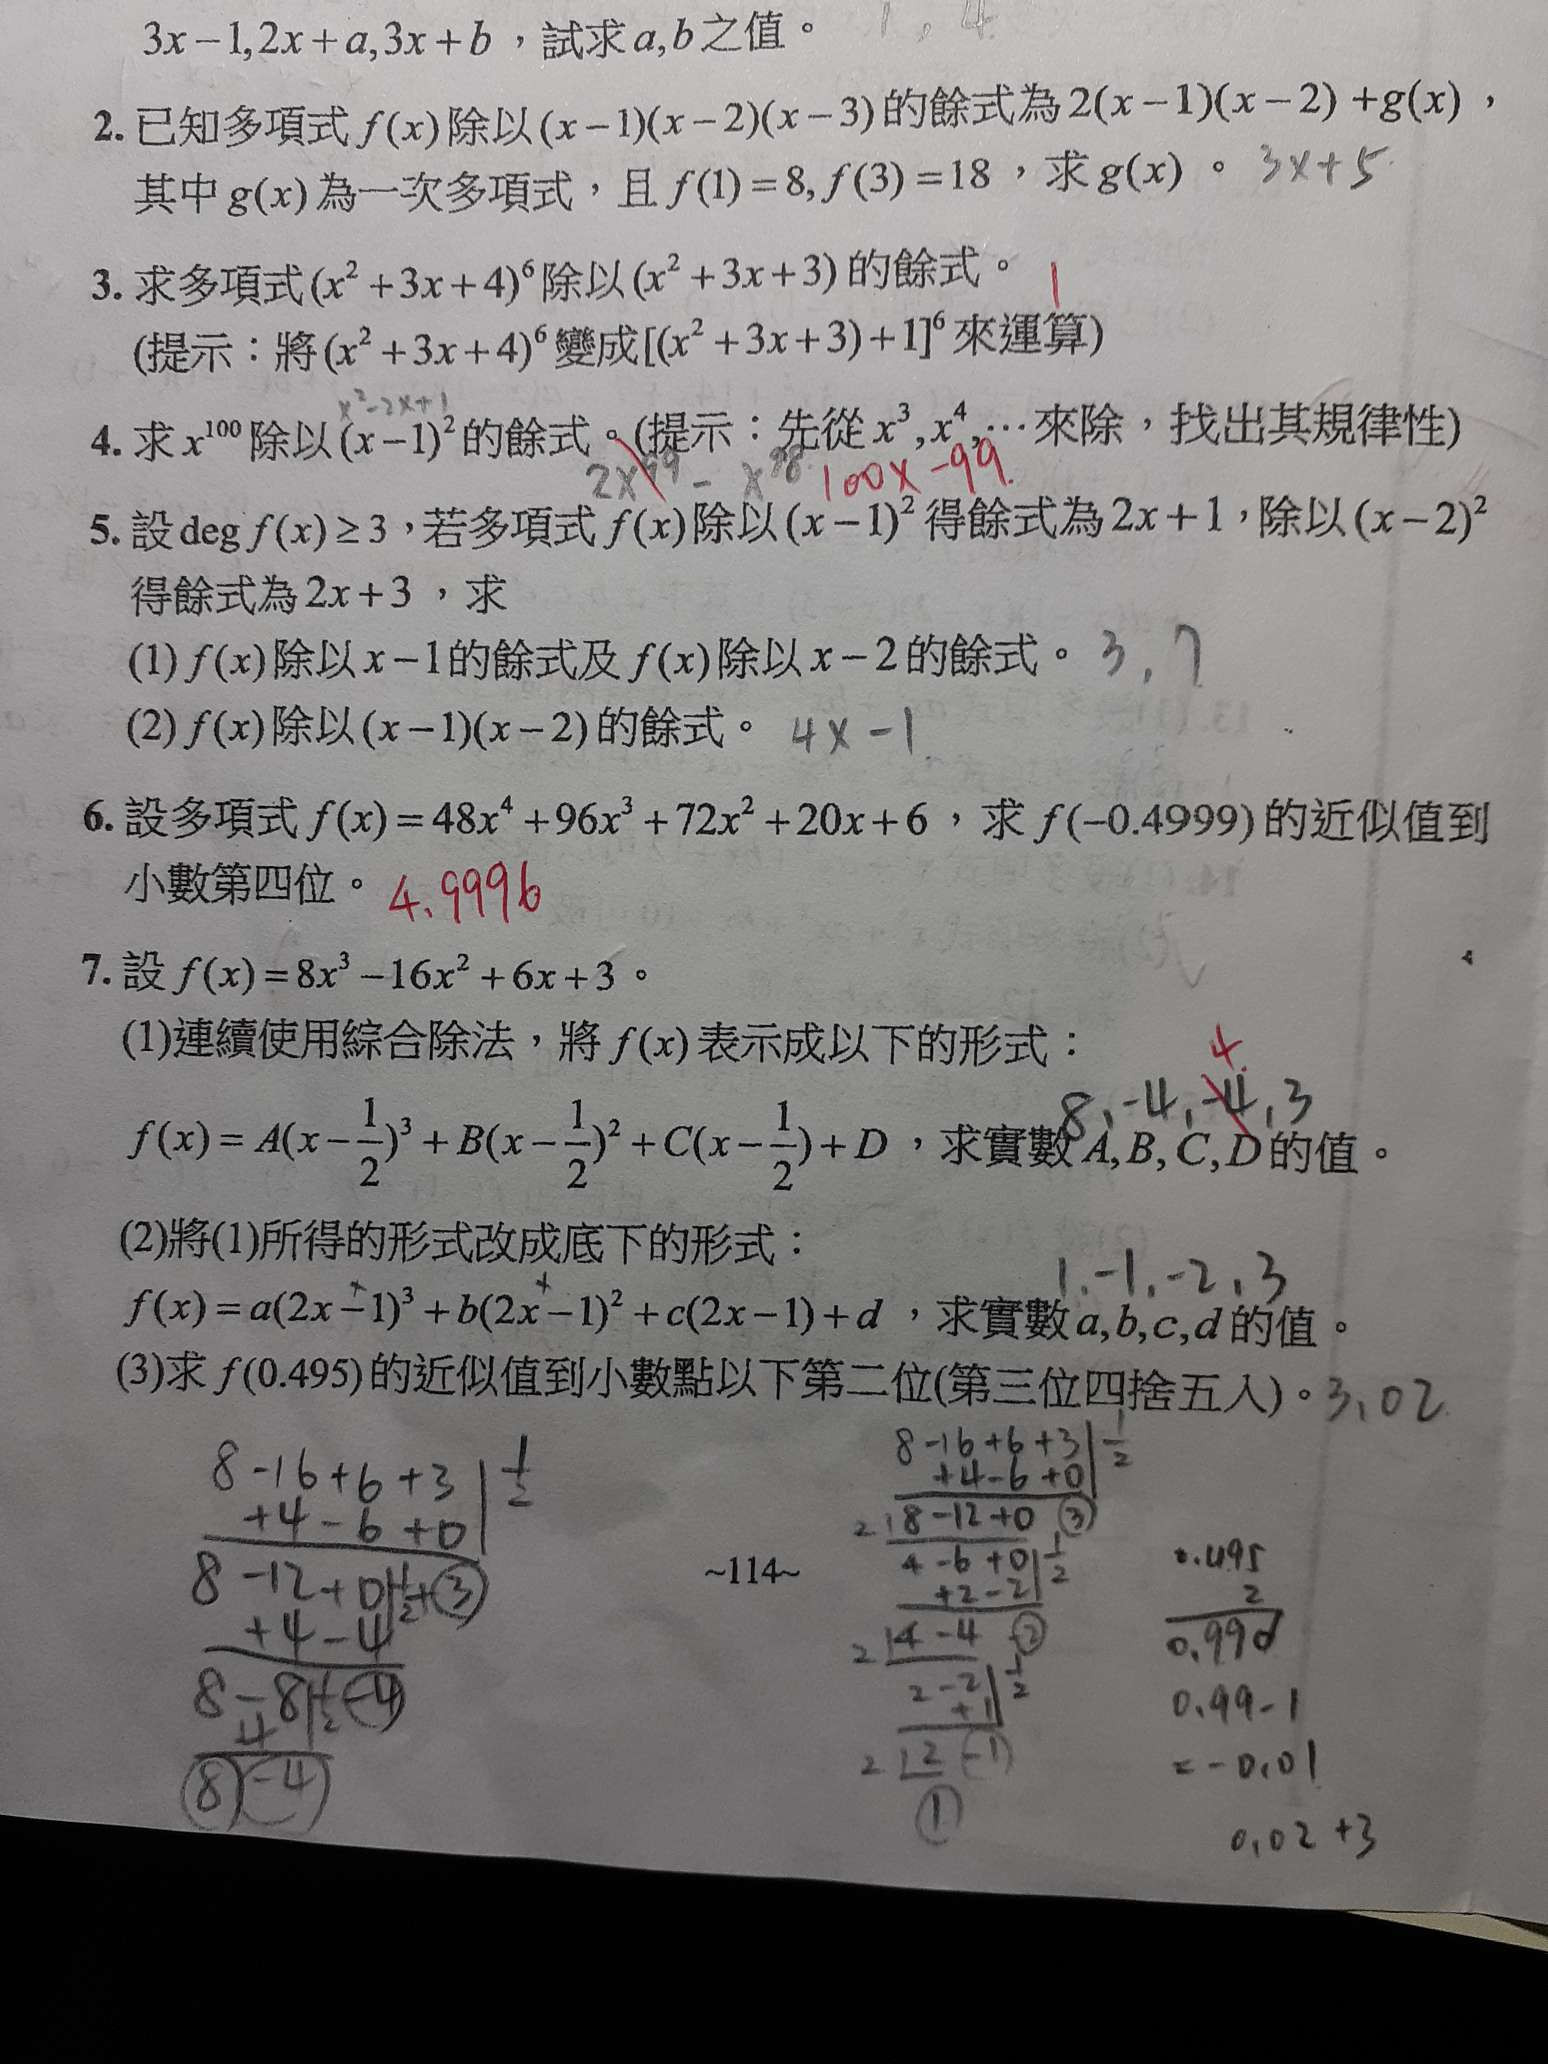 3x−1,2x+a,3x+b，試求a,b之值。 1，4
2. 已知多項式f(x)除以(x−1)(x−2)(x−3)的餘式為2(x−1)(x−2)+g(x)，
其中g(x)為一次多項式，且f(1)=8,f(3)=18，求g(x)。 3x+5
3. 求多項式(x²+3x+4)⁶除以(x²+3x+3)的餘式。 1
(提示：將(x²+3x+4)⁶變成[(x²+3x+3)+1]⁶來運算)
x²-2x+1
4. 求x¹⁰⁰除以(x−1)²的餘式。(提示：先從x³,x⁴,⋯來除，找出其規律性)
2x⁹⁹ - x⁹⁸ 100x-99
5. 設deg f(x)≥3，若多項式f(x)除以(x−1)²得餘式為2x+1，除以(x−2)²
得餘式為2x+3，求
(1) f(x)除以x−1的餘式及f(x)除以x−2的餘式。 3,7
(2) f(x)除以(x−1)(x−2)的餘式。 4x-1
6. 設多項式f(x)=48x⁴+96x³+72x²+20x+6，求f(−0.4999)的近似值到
小數第四位。 4.9996
7. 設f(x)=8x³−16x²+6x+3。
(1)連續使用綜合除法，將f(x)表示成以下的形式：
4
8,-4,-4,3
f(x)=A(x−1/2)³+B(x−1/2)²+C(x−1/2)+D，求實數A,B,C,D的值。
(2)將(1)所得的形式改成底下的形式：
1,-1,-2,3
f(x)=a(2x−1)³+b(2x−1)²+c(2x−1)+d，求實數a,b,c,d的值。
(3)求f(0.495)的近似值到小數點以下第二位(第三位四捨五入)。3.02
8-16+6+3 1/2
+4-6+0
8-12+0 1/2+3
+4-4
8-8 1/2 -4
4
8 -4
~114~
8-16+6+3 1/2
+4-6+0
2 8-12+0 3
4-6+0 1/2
+2-2
2 4-4 -2
2-2 1/2
+1
2 2 -1
1
0.495
2
0.990
0.99-1
=-0.01
0.02+3